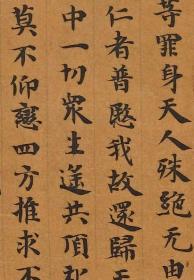 等罪身天人殊絶无由
仁者普愍我故還歸
中一切衆生遥共頂
莫不仰戀四方推求不